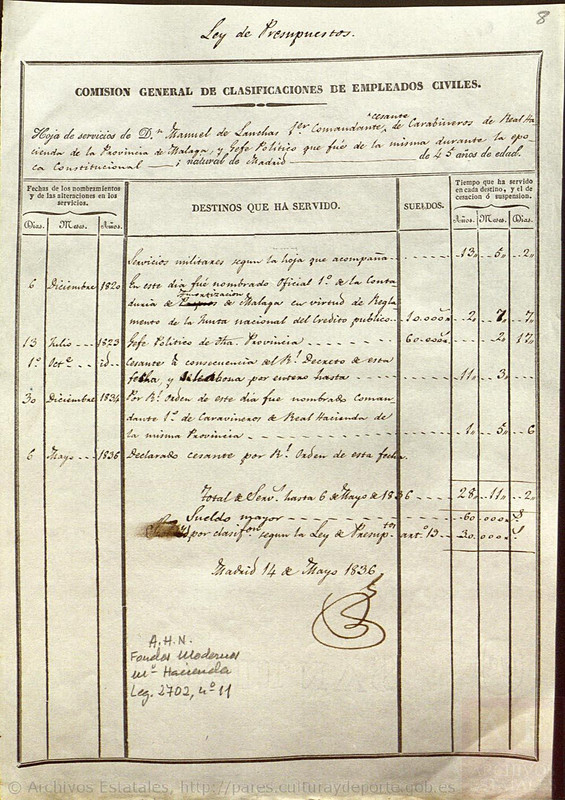 8
Ley de Presupuestos.
COMISION GENERAL DE CLASIFICACIONES DE EMPLEADOS CIVILES.
cesante
Hoja de servicios de D.n Manuel de Lanchas 1er Comandante, de Carabineros de Real Ha-
cienda de la Provincia de Malaga, y Gefe Politico que fué de la misma durante la epo-
ca Constitucional ; natural de Madrid de 45 años de edad.
Fechas de los nombramientos y de las alteraciones en los servicios.
DESTINOS QUE HA SERVIDO.
SUELDOS.
Tiempo que ha servido en cada destino, y el de cesacion ó suspension.
Dias. Meses. Años. Años. Meses. Dias.
Servicios militares segun la hoja que acompaña 13 5 2
6 Diciembre 1820 En este dia fué nombrado Oficial 1.º de la Conta
Amortizacion
duria de de Malaga en virtud de Regla
mento de la Junta nacional del Credito publico 10.000 2 7 7
13 Julio 1823 Gefe Politico de dha. Provincia 60.000 2 17
1.º Oct.e id. Cesante á consecuencia del R.l Decreto de esta
fecha, y se le abona por entero hasta 11 3
30 Diciembre 1834 Por R.l Orden de este dia fué nombrado Coman
dante 1.º de Caravineros de Real Hacienda de
la misma Provincia 1 5 6
6 Mayo 1836 Declarado cesante por R.l Orden de esta fecha.
Total de Serv.s hasta 6 de Mayo de 1836 28 11 2
Sueldo mayor 60.000
por clasif.on segun la Ley de Presup.tos art.o 13 30.000
Madrid 14 de Mayo 1836
A.H.N.
Fondos Modernos
Mº Hacienda
Leg. 2702, nº 11
ARCHIVO
© Archivos Estatales, http://pares.culturaydeporte.gob.es